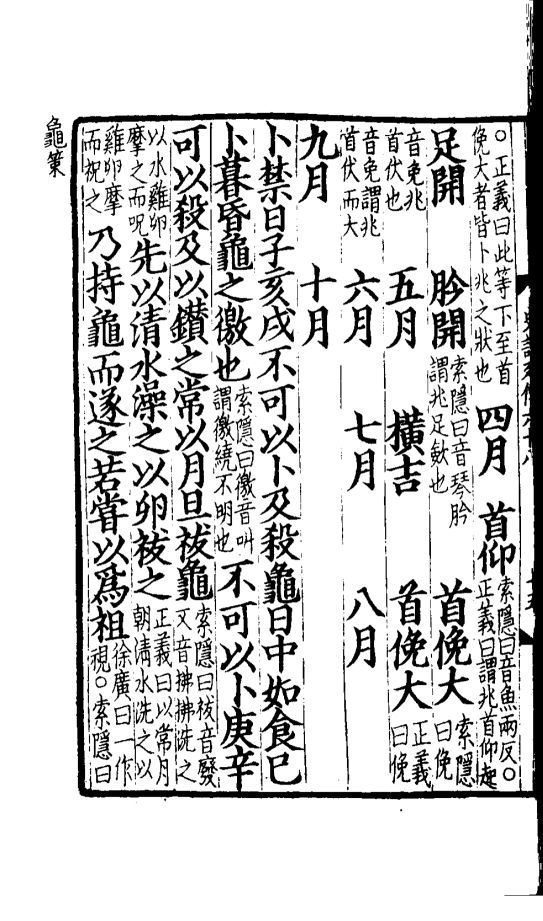 ○正義曰此等下至首俛大者皆卜兆之狀也四月 首仰索隱曰音魚兩反○正義曰謂兆首仰起
足開 肣開索隱曰音琴肣謂兆足歛也 首俛大索隱曰俛
音免兆首伏也 五月 橫吉 首俛大正義曰俛
音免謂兆首伏而大 六月 七月 八月
九月 十月
卜禁曰子亥戌不可以卜及殺龜日中如食已
卜暮昬龜之徼也索隱曰徼音叫謂徼繞不明也不可以卜庚辛
可以殺及以鑽之常以月旦祓龜索隱曰祓音廢又音拂拂洗之
以水雞卵摩之而呪先以清水澡之以卵祓之正義曰以常月朝清水洗之以
雞卵摩而祝之乃持龜而遂之若嘗以爲祖徐廣曰一作視○索隱曰
龜策